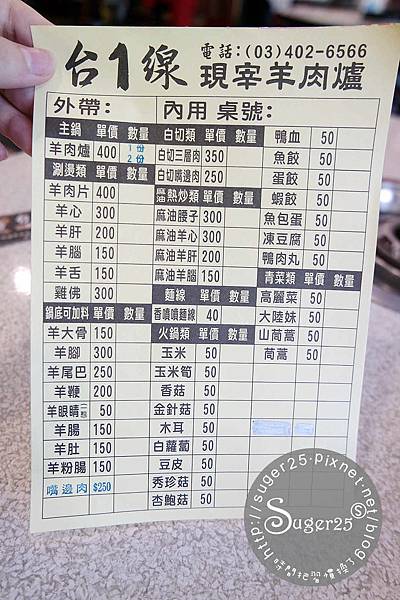 台1線 電話:(03)402-6566
現宰羊肉爐
外帶: 內用 桌號:
主鍋 單價 數量
羊肉爐 400 1份 2份
涮燙類 單價 數量
羊肉片 400
羊心 300
羊肝 200
羊腦 150
羊舌 150
雞佛 300
鍋底可加料 單價 數量
羊大骨 150
羊腳 300
羊尾巴 250
羊鞭 200
羊眼睛 50
羊腸 150
羊肚 150
羊粉腸 150
嘴邊肉 $250
白切類 單價 數量
白切三層肉 350
白切嘴邊肉 250
熱炒類 單價 數量
麻油腰子 300
麻油羊心 300
麻油羊肝 200
麻油羊腦 150
麵線 單價 數量
香噴噴麵線 40
火鍋類 單價 數量
玉米 50
玉米筍 50
香菇 50
金針菇 50
木耳 50
白蘿蔔 50
豆皮 50
秀珍菇 50
杏鮑菇 50
鴨血 50
魚餃 50
蛋餃 50
蝦餃 50
魚包蛋 50
凍豆腐 50
鴨肉丸 50
青菜類 單價 數量
高麗菜 50
大陸妹 50
山茼蒿 50
茼蒿 50
http://suger25.pixnet.net/blog
Suger25